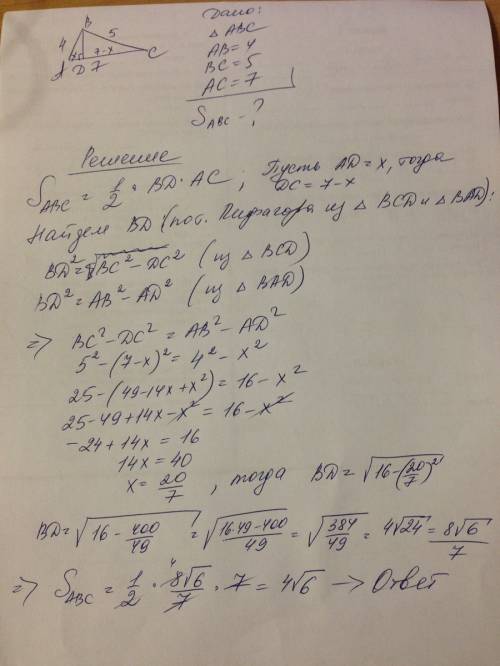 B
4
5
x
7-x
A
D
7
C
Дано:
△ ABC
AB = 4
BC = 5
AC = 7
S_ABC - ?
Решение
S_ABC = 1/2 · BD · AC ; Пусть AD = x, тогда
DC = 7-x
Найдем BD (по т. Пифагора из △ BCD и △ BAD):
BD² = BC² - DC² (из △ BCD)
BD² = AB² - AD² (из △ BAD)
=> BC² - DC² = AB² - AD²
5² - (7-x)² = 4² - x²
25 - (49 - 14x + x²) = 16 - x²
25 - 49 + 14x - x² = 16 - x²
-24 + 14x = 16
14x = 40
x = 20/7 , тогда BD = √(16 - (20/7)²)
BD = √(16 - 400/49) = √((16·49 - 400)/49) = √(384/49) = 4√24 = 8√6/7
=> S_ABC = 1/2 · 8√6/7 · 7 = 4√6 → Ответ